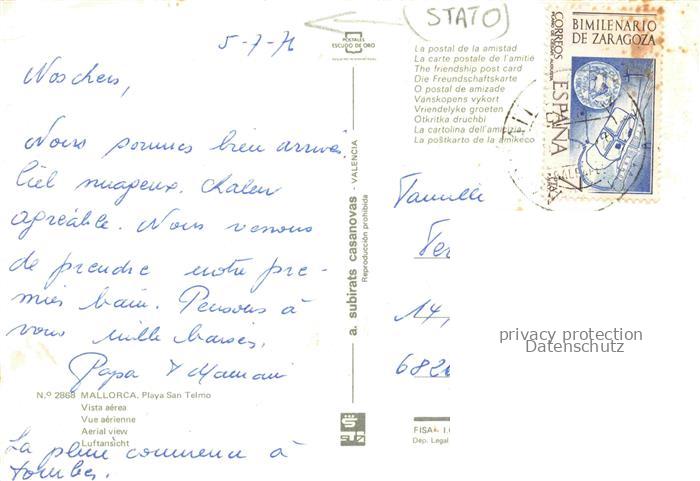 5-7-76
(STATO)
Nos chers,
Nous sommes bien arrivés.
Ciel nuageux. Chaleur
agréable. Nous venons
de prendre notre pre-
mier bain. Pensons à
vous mille baisers.
Papa & Maman
N.º 2868 MALLORCA. Playa San Telmo
Vista aérea
Vue aérienne
Aerial view
Luftansicht
La pluie commence à
tomber.
POSTALES
ESCUDO DE ORO
a. subirats casanovas - VALENCIA
Reproducción prohibida
La postal de la amistad
La carte postale de l'amitié
The friendship post card
Die Freundschaftskarte
O postal de amizade
Vanskopens vykort
Vriendelyke groeten
Otkritka druchbi
La cartolina dell'amicizia
La poŝtkarto de la amikeco
BIMILENARIO
DE ZARAGOZA
CORREOS
ESPAÑA
Famille
Fer
14,
682
privacy protection
Datenschutz
FISA
Dep. Legal